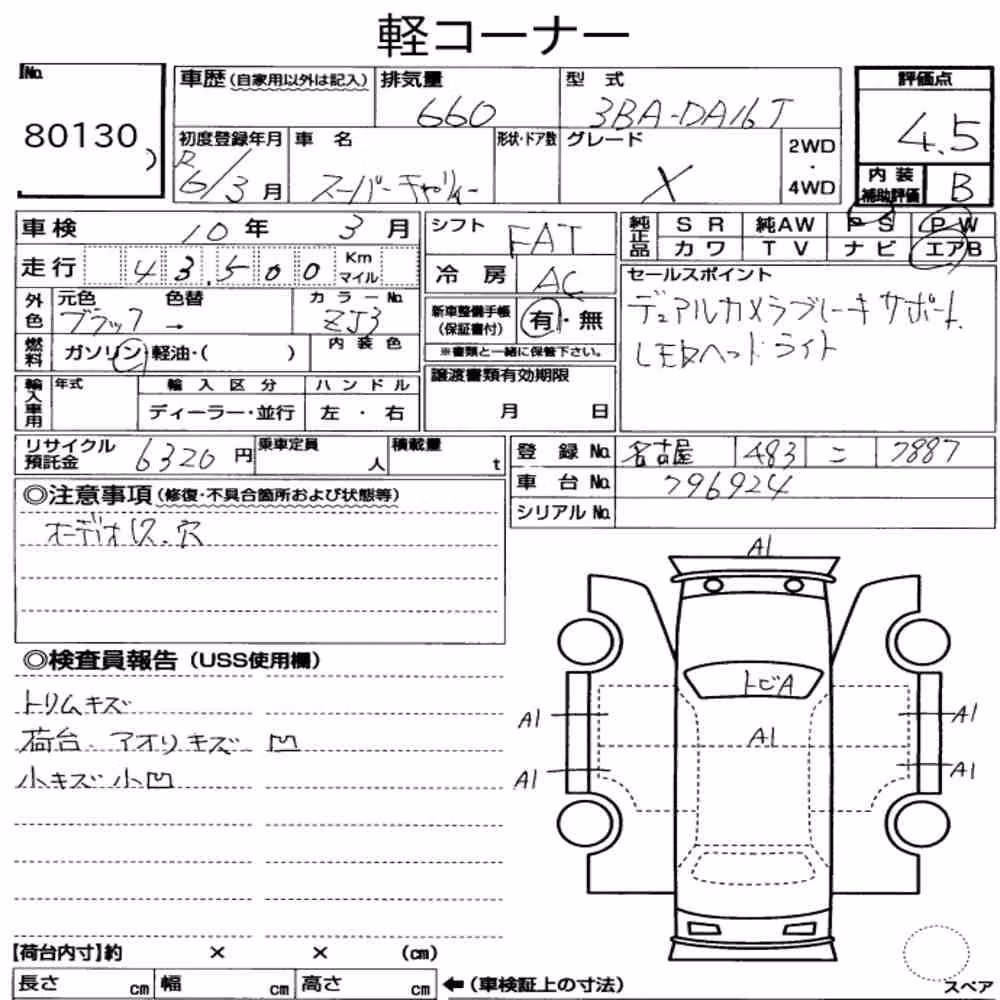 軽コーナー
No.
80130
車歴(自家用以外は記入)
排気量
660
型式
3BA-DA16T
評価点
4.5
初度登録年月
R
6/3月
車名
スーパーキャリィ
形状・ドア数
グレード
X
2WD
・
4WD
内装
補助評価
B
車検 10年 3月
シフト
FAT
純正品
SR 純AW PS PW
カワ TV ナビ エアB
走行 43,500 Km
マイル
冷房 AC
セールスポイント
デュアルカメラブレーキサポート
LEDヘッドライト
外色
元色
ブラック →
色替
カラーNo.
ZJ3
新車整備手帳
(保証書付)
有・無
※書類と一緒に保管下さい。
燃料
ガソリン・軽油・( )
内装色
輸入車用
年式
輸入区分
ディーラー・並行
ハンドル
左・右
譲渡書類有効期限
月 日
リサイクル
預託金
6320円
乗車定員
人
積載量
t
登録No. 名古屋 483 こ 7887
車台No. 796924
シリアルNo.
◎注意事項(修復・不具合箇所および状態等)
オーディオレス、穴
◎検査員報告(USS使用欄)
トリムキズ
荷台、アオリキズ 凹
小キズ小凹
A1
トビA
A1
A1
A1
A1
A1
【荷台内寸】約 × × (cm)
長さ cm 幅 cm 高さ cm ←(車検証上の寸法)
スペア